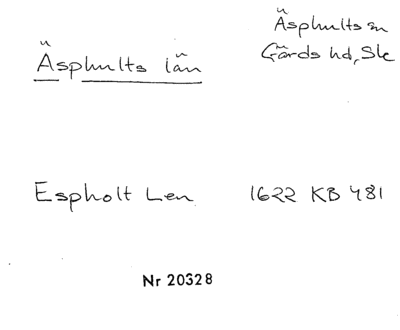 Äsphults län
Äsphults sn
Gärds hd, Sk
Espholt Len 1622 KB 481
Nr 20328